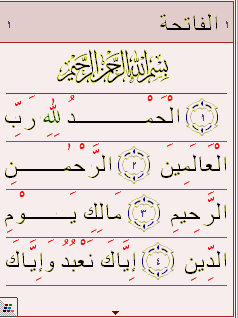 ١ الفاتحة ١
بِسْمِ اللَّهِ الرَّحْمَٰنِ الرَّحِيمِ
١ الْحَمْـــــدُ لِلَّهِ رَبِّ
الْعَالَمِينَ ٢ الرَّحْمَـٰـنِ
الرَّحِيمِ ٣ مَالِكِ يَـــوْمِ
الدِّينِ ٤ إِيَّاكَ نَعْبُدُ وَإِيَّاكَ